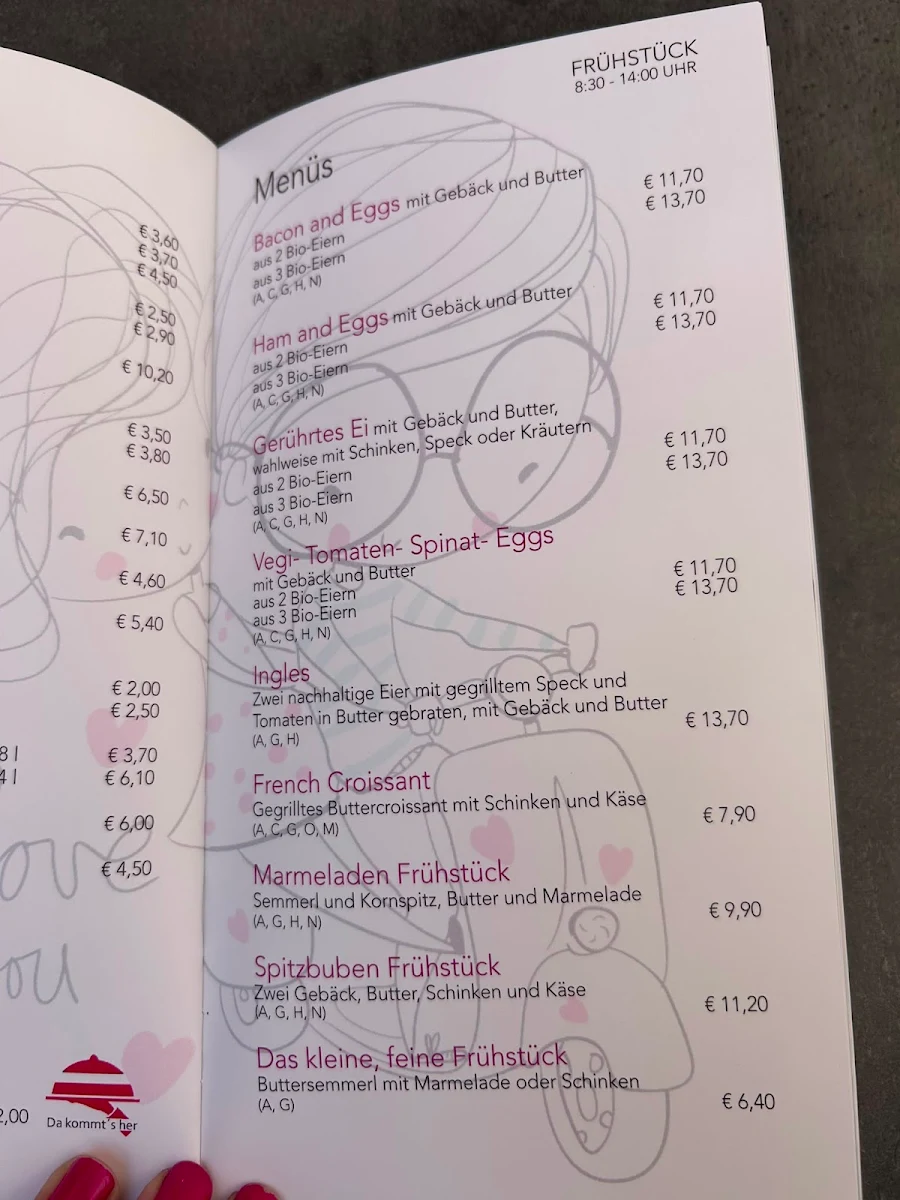 € 3,60
€ 3,70
€ 4,50
€ 2,50
€ 2,90
€ 10,20
€ 3,50
€ 3,80
€ 6,50
€ 7,10
€ 4,60
€ 5,40
€ 2,00
€ 2,50
8 l € 3,70
4 l € 6,10
€ 6,00
€ 4,50
ove
ou
2,00
Da kommt´s her
FRÜHSTÜCK
8:30 - 14:00 UHR
Menüs
Bacon and Eggs mit Gebäck und Butter
aus 2 Bio-Eiern € 11,70
aus 3 Bio-Eiern € 13,70
(A, C, G, H, N)
Ham and Eggs mit Gebäck und Butter
aus 2 Bio-Eiern € 11,70
aus 3 Bio-Eiern € 13,70
(A, C, G, H, N)
Gerührtes Ei mit Gebäck und Butter,
wahlweise mit Schinken, Speck oder Kräutern
aus 2 Bio-Eiern € 11,70
aus 3 Bio-Eiern € 13,70
(A, C, G, H, N)
Vegi- Tomaten- Spinat- Eggs
mit Gebäck und Butter
aus 2 Bio-Eiern € 11,70
aus 3 Bio-Eiern € 13,70
(A, C, G, H, N)
Ingles
Zwei nachhaltige Eier mit gegrilltem Speck und
Tomaten in Butter gebraten, mit Gebäck und Butter € 13,70
(A, G, H)
French Croissant
Gegrilltes Buttercroissant mit Schinken und Käse € 7,90
(A, C, G, O, M)
Marmeladen Frühstück
Semmerl und Kornspitz, Butter und Marmelade € 9,90
(A, G, H, N)
Spitzbuben Frühstück
Zwei Gebäck, Butter, Schinken und Käse € 11,20
(A, G, H, N)
Das kleine, feine Frühstück
Buttersemmerl mit Marmelade oder Schinken € 6,40
(A, G)